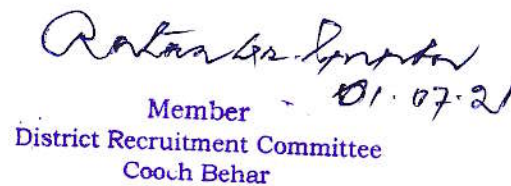 01.07.21
Member
District Recruitment Committee
Cooch Behar